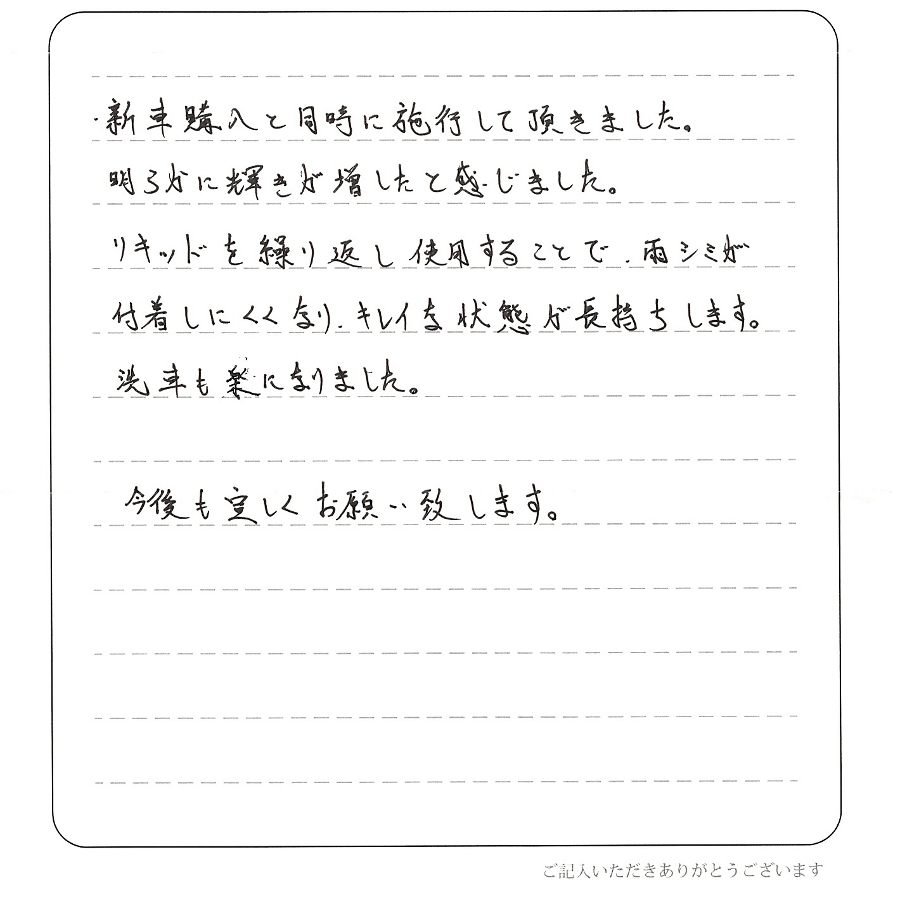 ・新車購入と同時に施行して頂きました。
明らかに輝きが増したと感じました。
リキッドを繰り返し使用することで、雨シミが
付着しにくくなり、キレイな状態が長持ちします。
洗車も楽になりました。
今後も宜しくお願い致します。
ご記入いただきありがとうございます